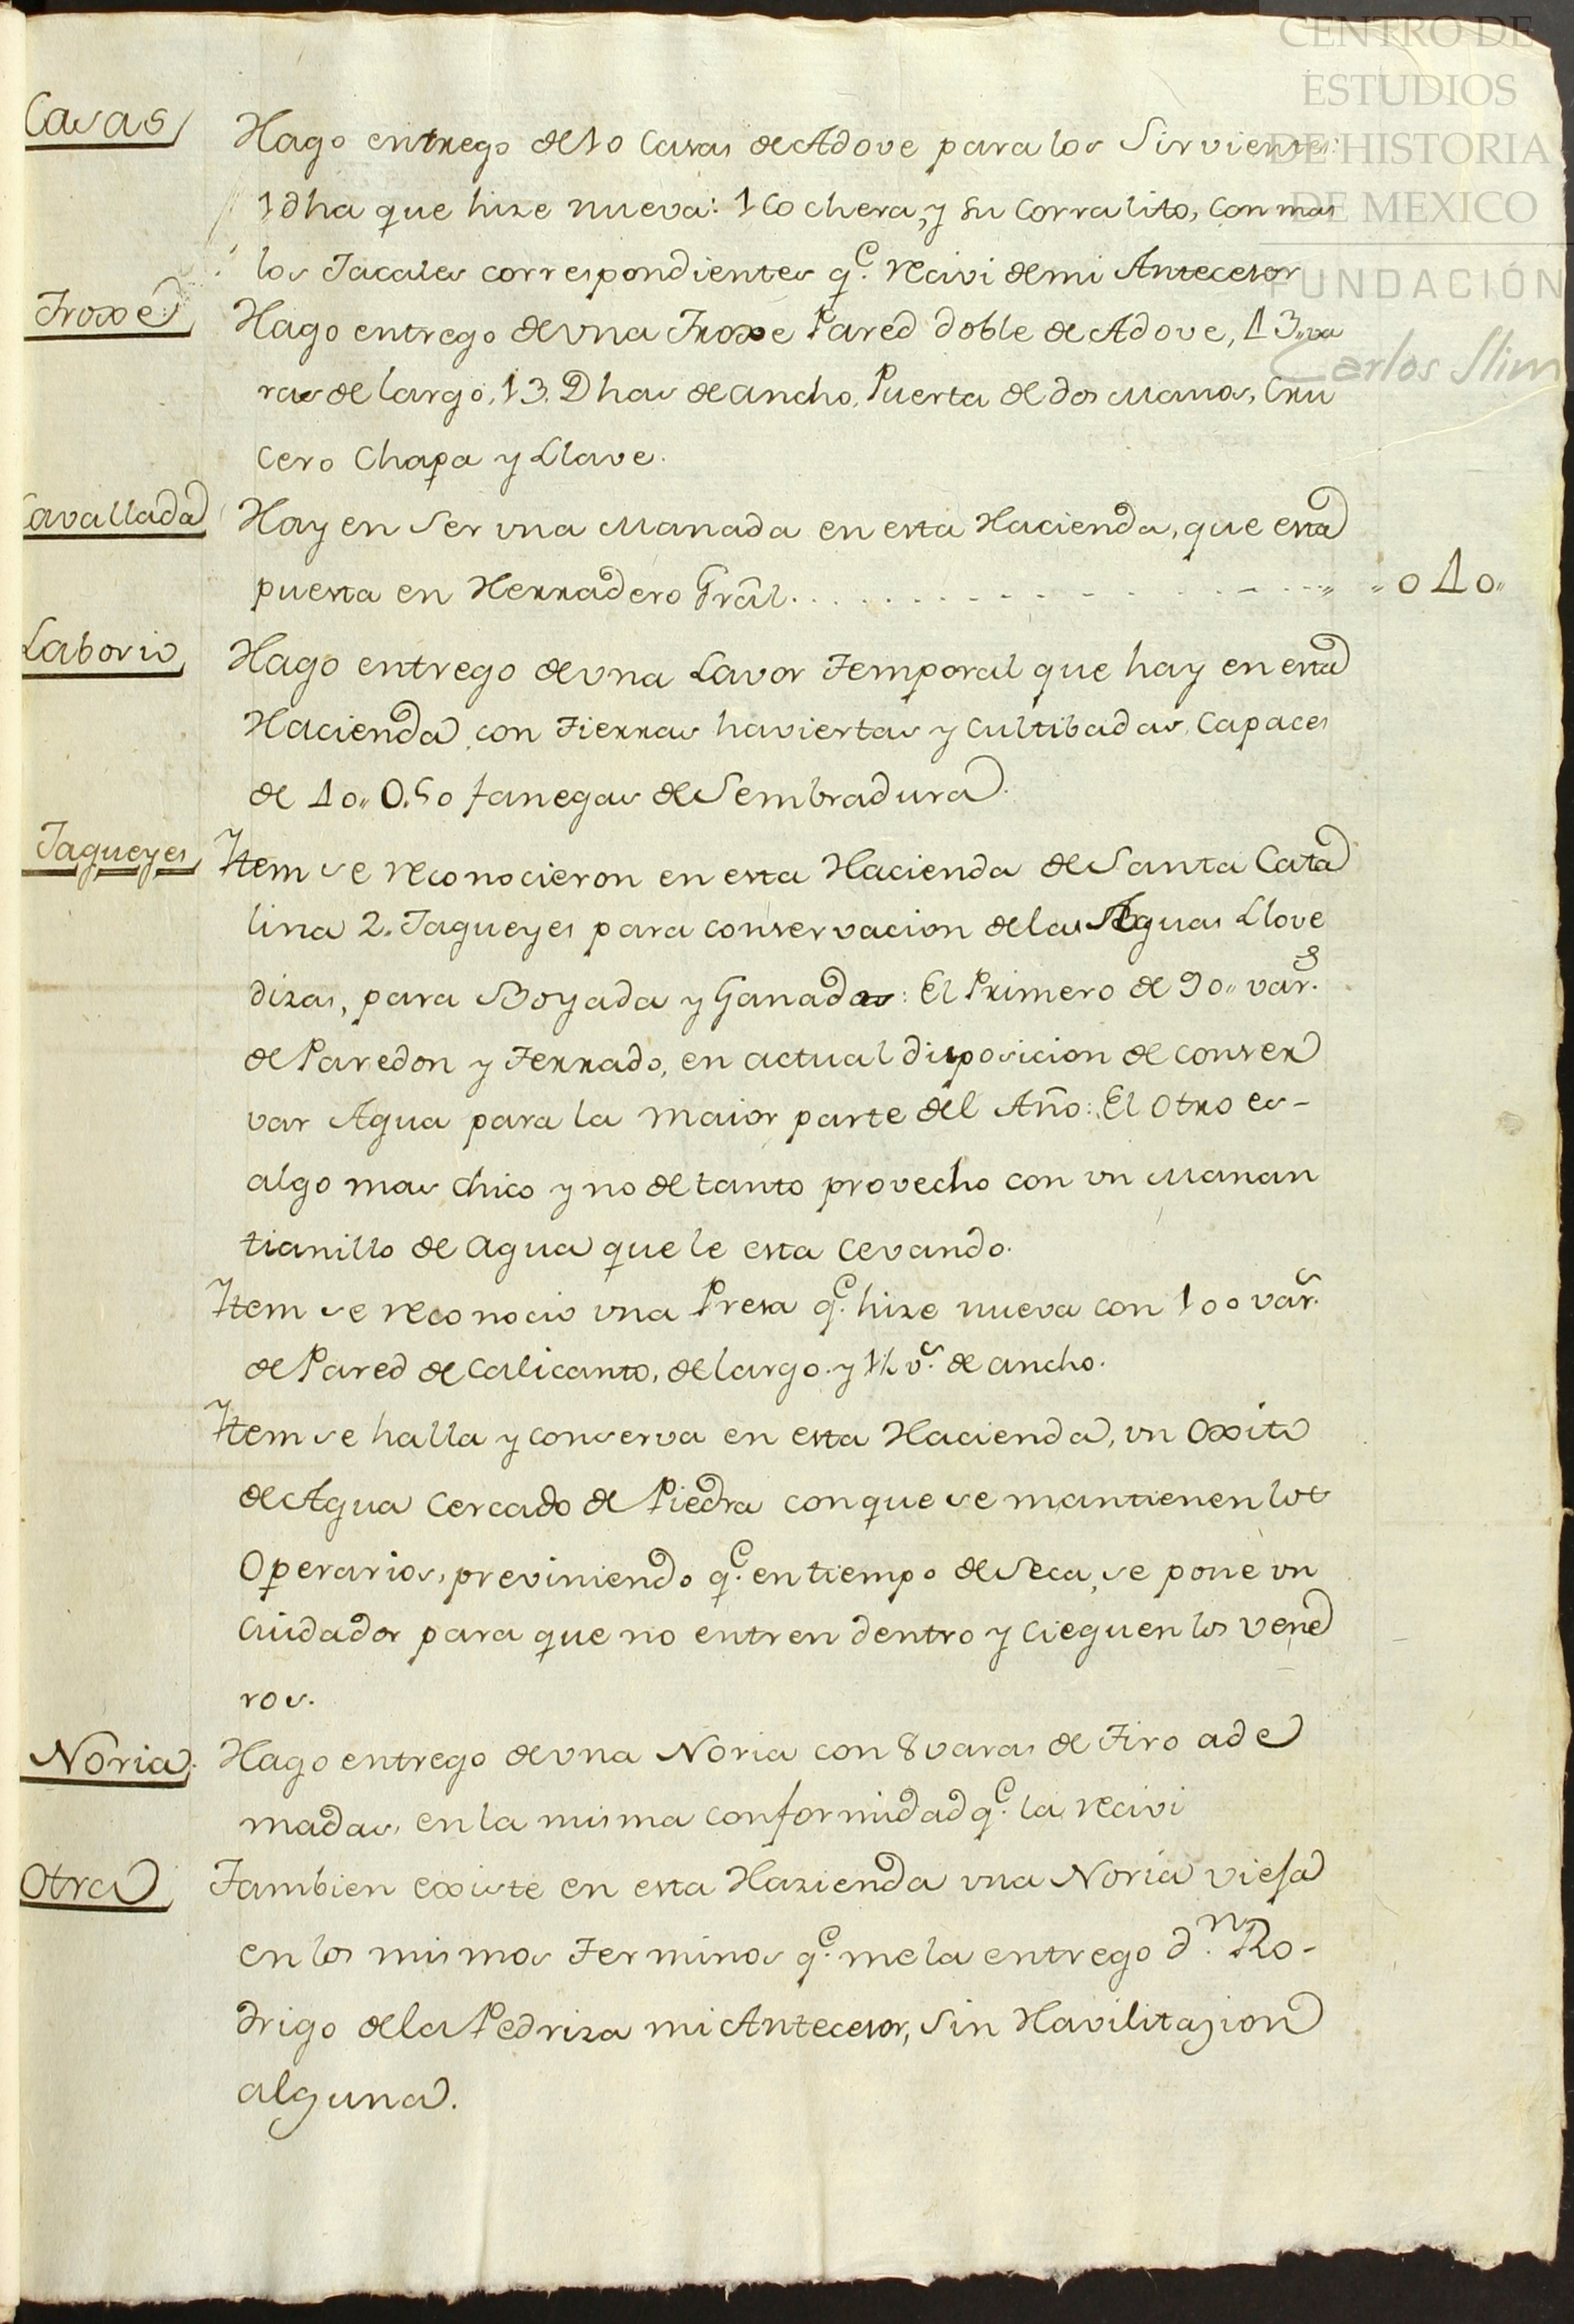 CENTRO DE
ESTUDIOS
DE HISTORIA
DE MEXICO
FUNDACIÓN
Carlos Slim
Casas
Hago entrego de 10 Casas de Adove para los Sirvientes:
1 dha que hize nueva: 1 Cochera, y su Corralito, con mas
los Jacales correspondientes q.e recivi de mi Antecesor
Troxe
Hago entrego de vna Troxe Pared doble de Adove, 43,, va
ras de largo, 13. Dhas de ancho, Puerta de dos Manos, Cru
cero Chapa y Llave.
Cavallada
Hay en Ser vna Manada en esta Hacienda, que esta
puesta en Herradero Grâl. . . . . . . . . . . . . . . . ,, ,, 040,,
Laborio
Hago entrego de vna Lavor Temporal que hay en esta
Hacienda con Tierras haviertas y Cultibadas, Capaces
de 40,, 0.50 fanegas de Sembradura.
Jagueyes
Ytem se reconocieron en esta Hacienda de Santa Cata
lina 2. Jagueyes para conservacion de las Aguas Llove
dizas, para Boyada y Ganados: El Primero de 90,, var.s
de Paredon y Terrado, en actual disposicion de conser
var Agua para la maior parte del Año: El Otro es-
algo mas chico y no de tanto provecho con vn Manan
tianillo de agua que le esta cevando.
Ytem se reconocio vna Presa q.e hize nueva con 100 var.s
de Pared de Calicanto, de largo. y 1½ v.s de ancho.
Ytem se halla y conserva en esta Hacienda, vn Oxito
de Agua Cercado de Piedra con que se mantienen los
Operarios, previniendo q.e en tiempo de Seca, se pone vn
Cuidador para que no entren dentro y cieguen los vene
ros.
Noria.
Hago entrego de vna Noria con 8 varas de Tiro ade
madas, en la misma conformidad q.e la recivi
Otra
Tambien existe en esta Hazienda vna Noria viefa
en los mismos Terminos q.e me la entrego d.n Ro-
drigo de la Pedriza mi Antecesor, Sin Havilitazion
alguna.